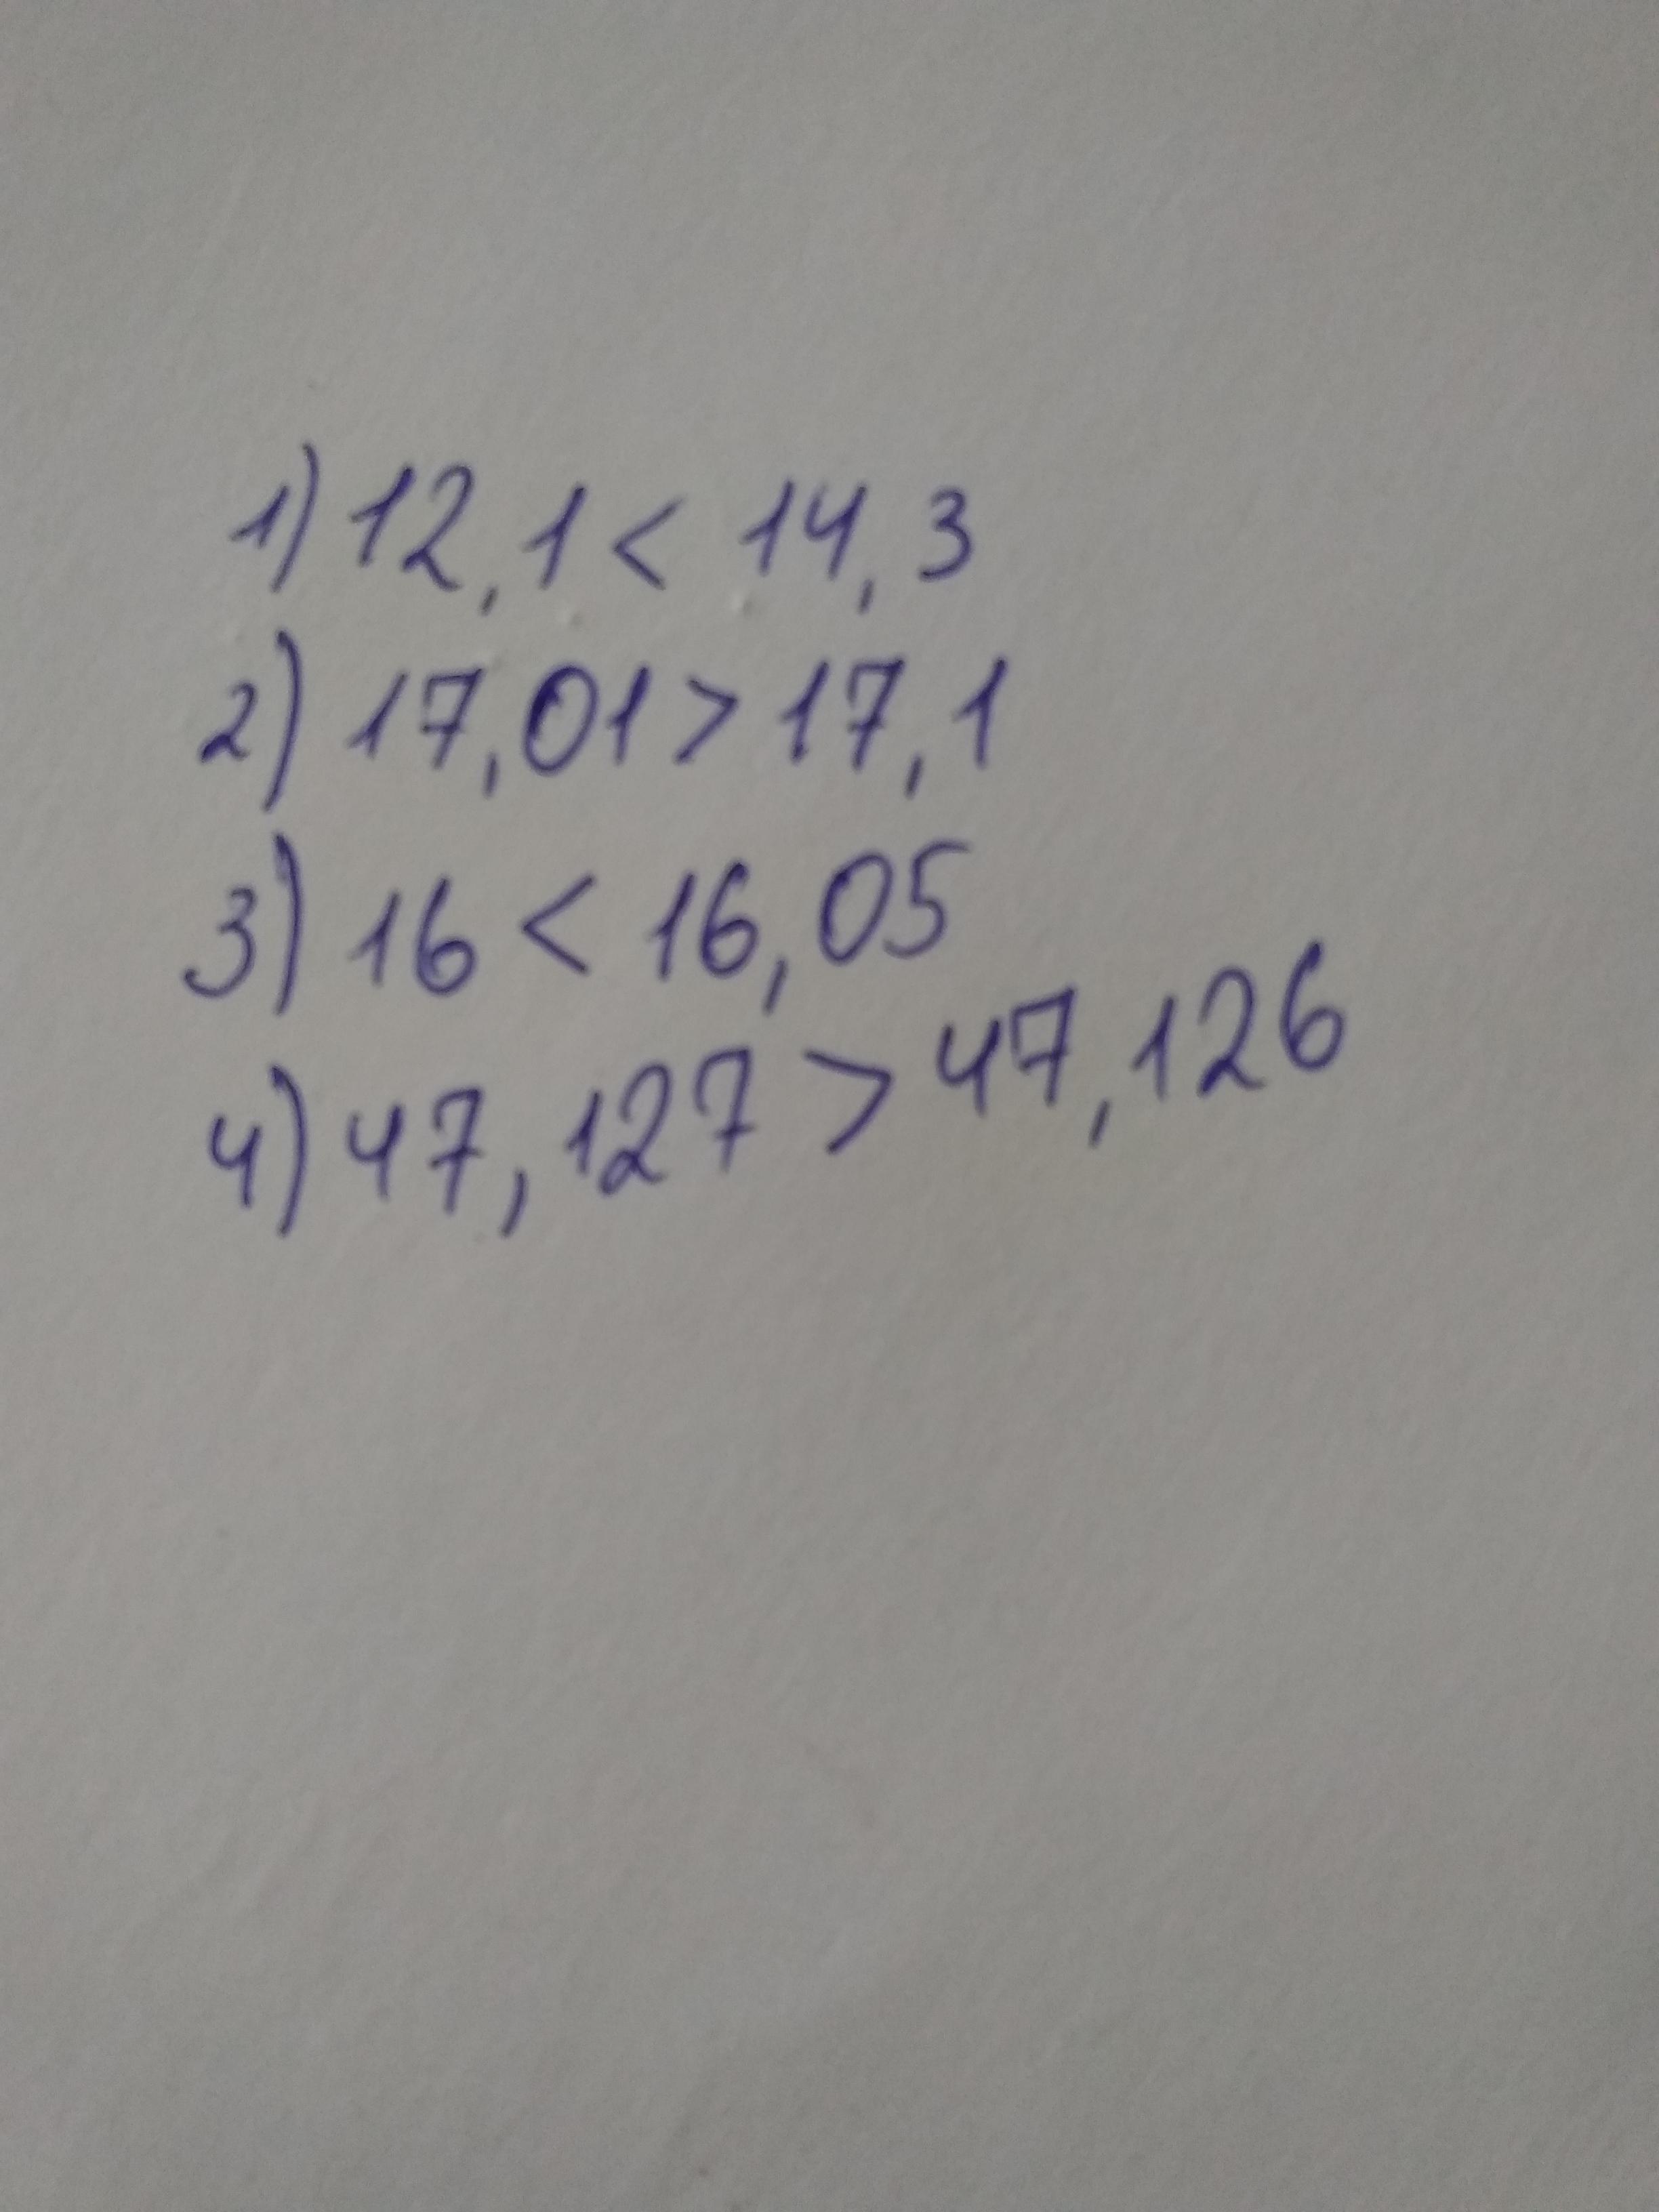 1) 12,1 < 14,3
2) 17,01 > 17,1
3) 16 < 16,05
4) 47,127 > 47,126